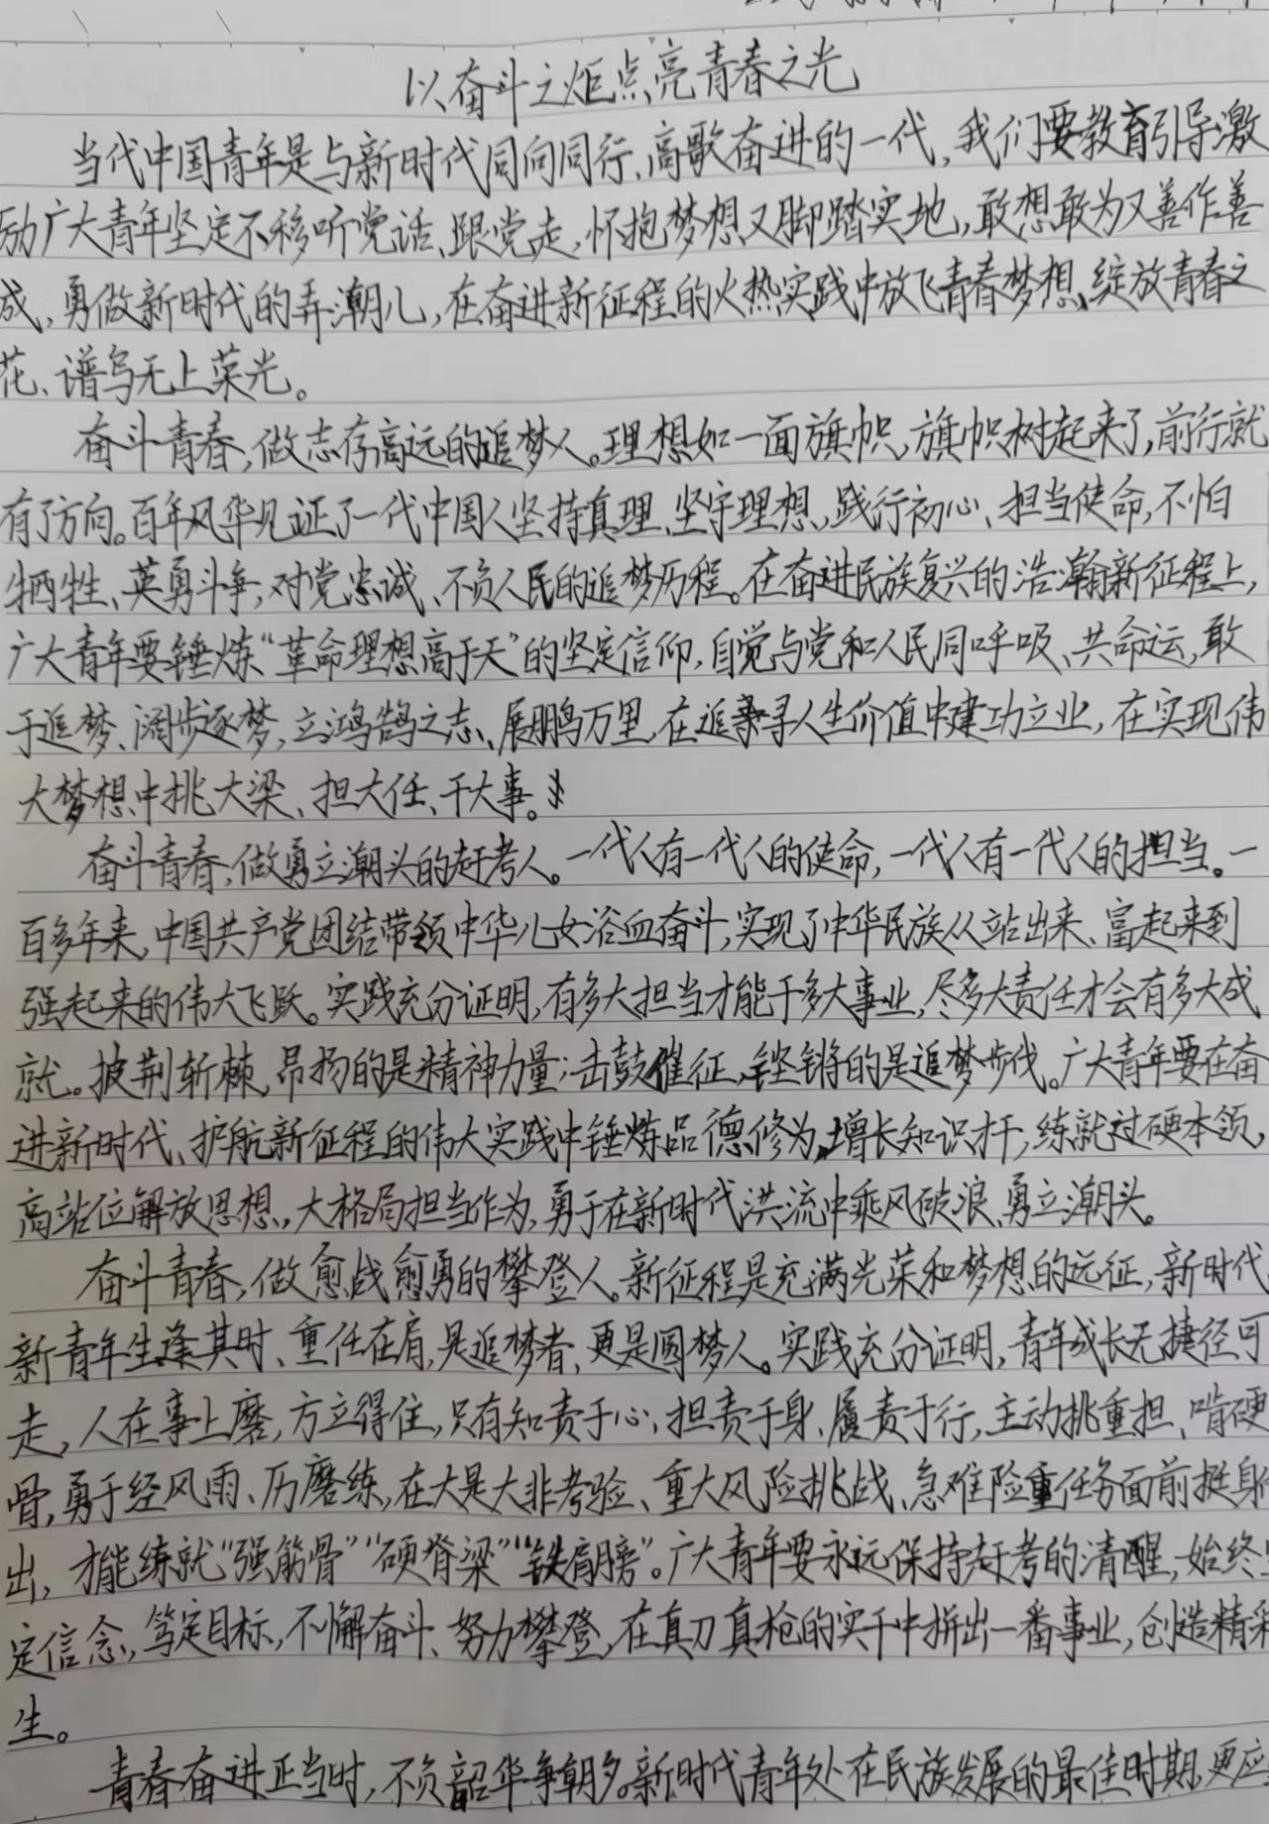 以奋斗之炬点亮青春之光
当代中国青年是与新时代同向同行、高歌奋进的一代，我们要教育引导激
励广大青年坚定不移听党话、跟党走，怀抱梦想又脚踏实地，敢想敢为又善作善
成，勇做新时代的弄潮儿，在奋进新征程的火热实践中放飞青春梦想、绽放青春之
花、谱写无上荣光。
奋斗青春，做志存高远的追梦人。理想如一面旗帜，旗帜树起来了，前行就
有了方向。百年风华见证了一代中国人坚持真理、坚守理想、践行初心、担当使命，不怕
牺牲、英勇斗争，对党忠诚、不负人民的追梦历程。在奋进民族复兴的浩瀚新征程上，
广大青年要锤炼“革命理想高于天”的坚定信仰，自觉与党和人民同呼吸、共命运，敢
于追梦、阔步逐梦，立鸿鹄之志、展鹏万里，在追寻人生价值中建功立业，在实现伟
大梦想中挑大梁、担大任、干大事。
奋斗青春，做勇立潮头的赶考人。一代人有一代人的使命，一代人有一代人的担当。一
百多年来，中国共产党团结带领中华儿女浴血奋斗，实现了中华民族从站出来、富起来到
强起来的伟大飞跃。实践充分证明，有多大担当才能干多大事业，尽多大责任才会有多大成
就。披荆斩棘，昂扬的是精神力量；击鼓催征，铿锵的是追梦步伐。广大青年要在奋
进新时代、护航新征程的伟大实践中锤炼品德修为，增长知识才干，练就过硬本领，
高站位解放思想，大格局担当作为，勇于在新时代洪流中乘风破浪、勇立潮头。
奋斗青春，做愈战愈勇的攀登人。新征程是充满光荣和梦想的远征，新时代
新青年生逢其时、重任在肩，是追梦者，更是圆梦人。实践充分证明，青年成长无捷径可
走，人在事上磨，方立得住，只有知责于心，担责于身、履责于行，主动挑重担、啃硬
骨，勇于经风雨、历磨练，在大是大非考验、重大风险挑战、急难险重任务面前挺身
出，才能练就“强筋骨”“硬脊梁”“铁肩膀”。广大青年要永远保持赶考的清醒，始终
定信念，笃定目标，不懈奋斗、努力攀登，在真刀真枪的实干中拼出一番事业，创造精彩
生。
青春奋进正当时，不负韶华争朝夕。新时代青年处在民族发展的最佳时期，更应